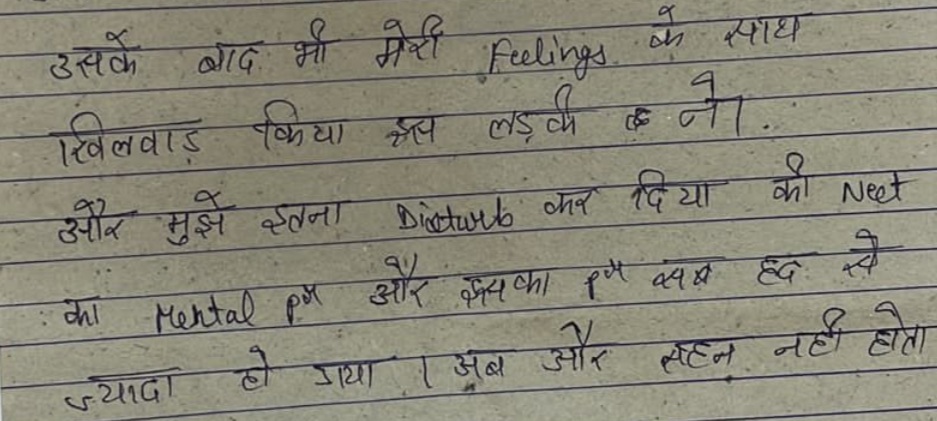 उसके बाद भी मेरी Feelings के साथ
खिलवाड़ किया इस लड़की ने।
और मुझे इतना Disturb कर दिया की Neet
का Mental pm और इसका pm सब हद से
ज्यादा हो गया । अब और सहन नही होता